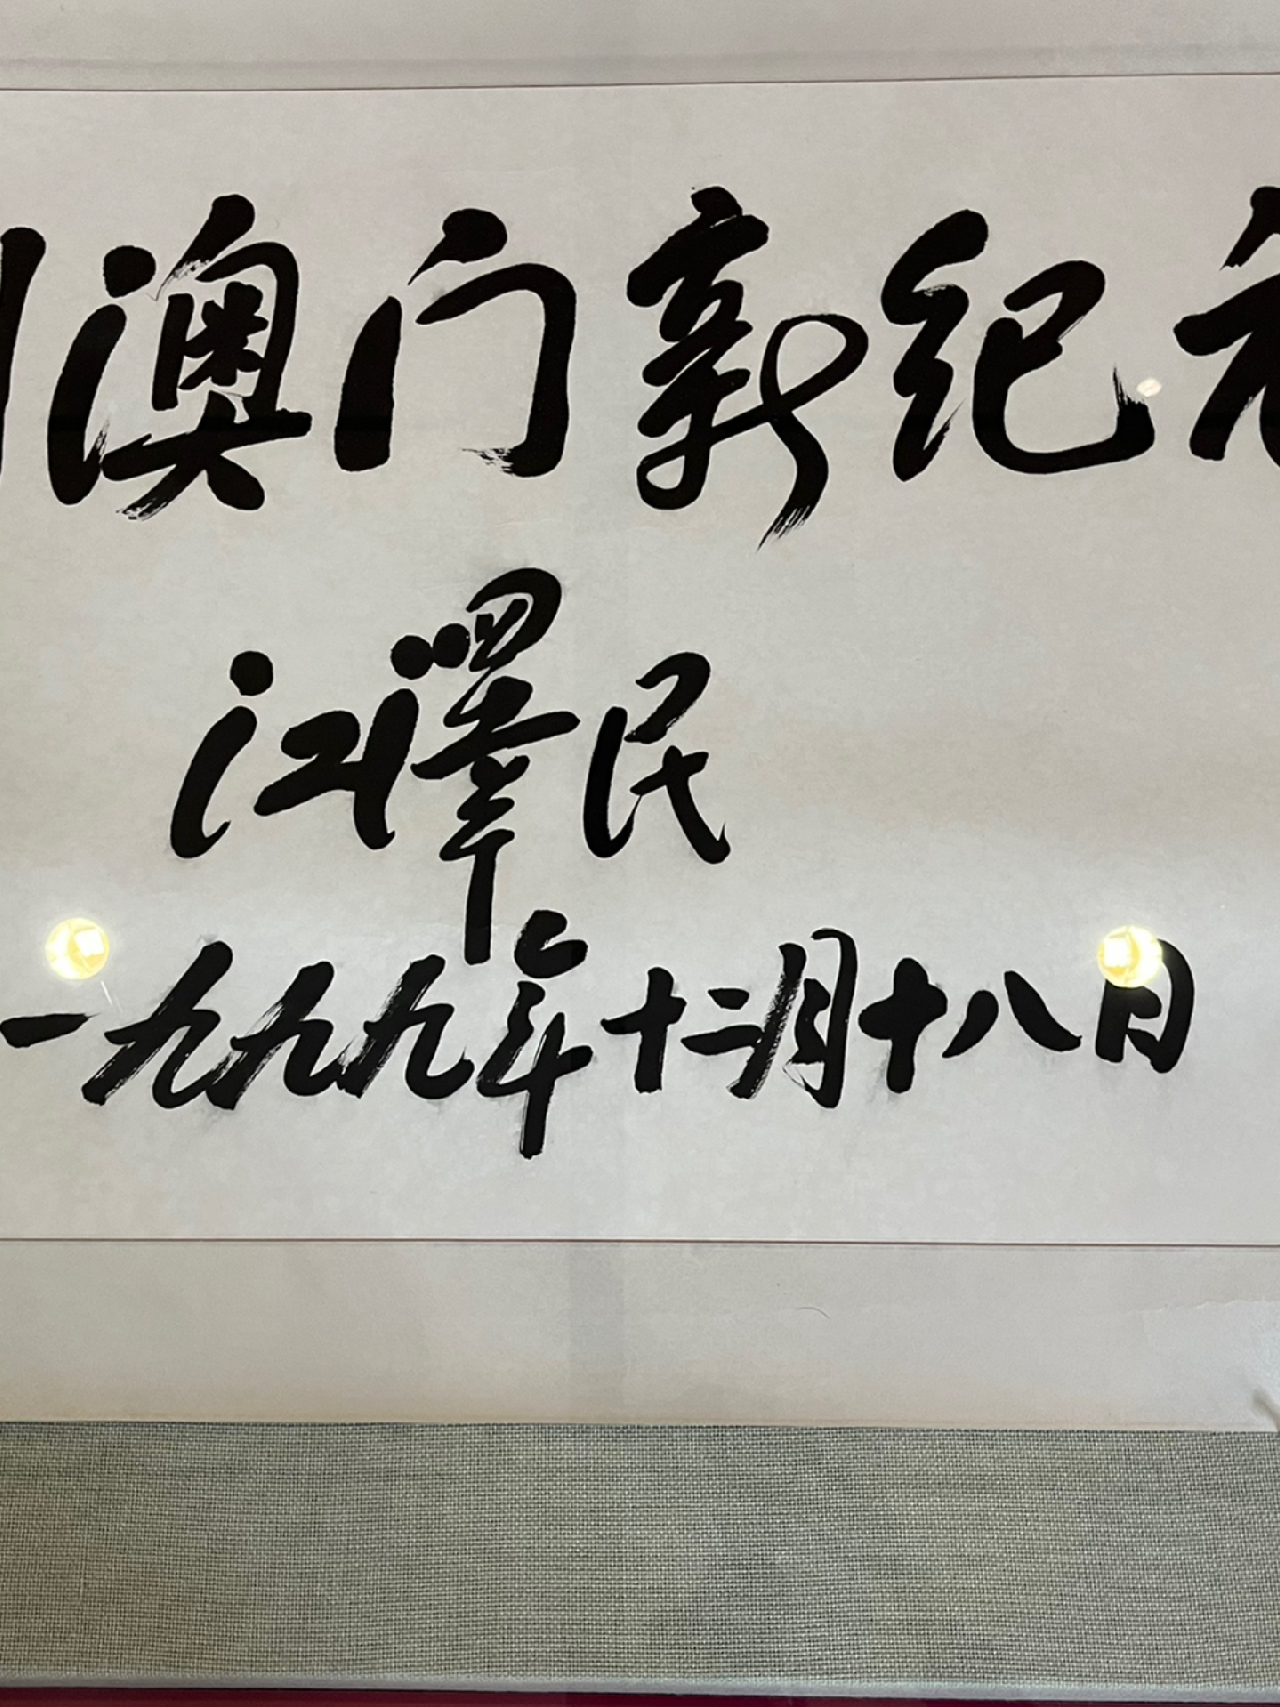 澳门新纪元
江澤民
一九九九年十二月十八日